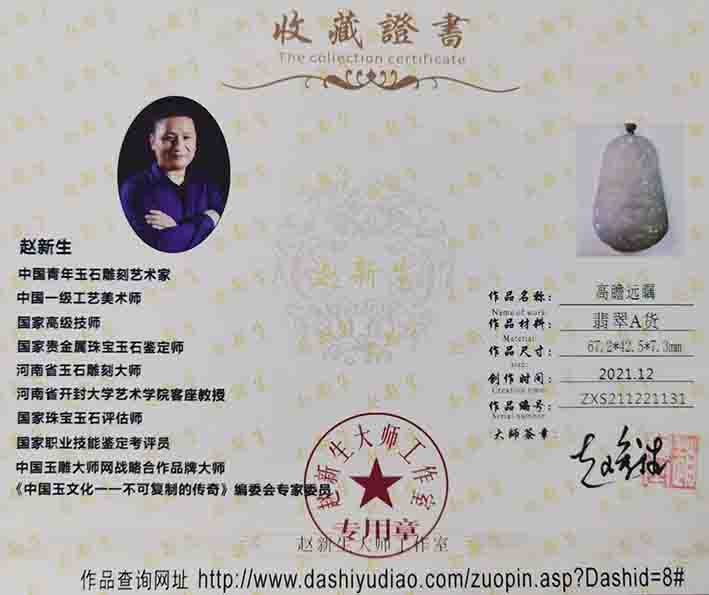 收藏證書
The collection certificate
赵新生
中国青年玉石雕刻艺术家
中国一级工艺美术师
国家高级技师
国家贵金属珠宝玉石鉴定师
河南省玉石雕刻大师
河南省开封大学艺术学院客座教授
国家珠宝玉石评估师
国家职业技能鉴定考评员
中国玉雕大师网战略合作品牌大师
《中国玉文化一一不可复制的传奇》编委会专家委员
赵新生
作品名称： 高瞻远瞩
Name of work:
作品材料： 翡翠A货
Material:
作品尺寸： 67.2*42.5*7.3mm
size:
创作时间： 2021.12
Creation time:
作品编号： ZXS211221131
Serial number:
大师签章：
赵新生大师工作室
专用章
赵新生大师工作室
作品查询网址 http://www.dashiyudiao.com/zuopin.asp?Dashid=8#